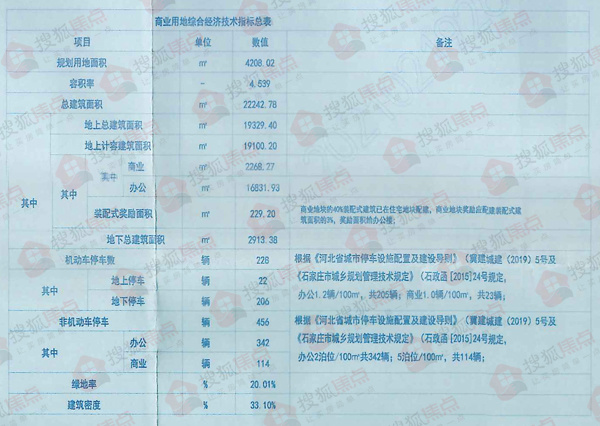 商业用地综合经济技术指标总表
项目 单位 数值 备注
规划用地面积 ㎡ 4208.02
容积率 - 4.539
总建筑面积 ㎡ 22242.78
地上总建筑面积 ㎡ 19329.40
地上计容建筑面积 ㎡ 19100.20
商业 ㎡ 2268.27
其中
办公 ㎡ 16831.93
其中 其中
装配式奖励面积 ㎡ 229.20 商业地块的40%装配式建筑已在住宅地块配建，商业地块奖励应配建装配式建
筑面积的3%，奖励面积的办公楼；
地下总建筑面积 ㎡ 2913.38
机动车停车数 辆 228 根据《河北省城市停车设施配置及建设导则》（冀建城建（2019）5号及
地上停车 辆 22 《石家庄市城乡规划管理技术规定》（石政函[2015]24号规定，
其中
地下停车 辆 206 办公1.2辆/100㎡，共205辆；商业1.0辆/100㎡，共23辆；
非机动车停车 辆 456 根据《河北省城市停车设施配置及建设导则》（冀建城建（2019）5号及
其中 办公 辆 342 《石家庄市城乡规划管理技术规定》（石政函[2015]24号规定，
商业 辆 114 办公2泊位/100㎡共342辆；5泊位/100㎡，共114辆；
绿地率 % 20.01%
建筑密度 % 33.10%
搜狐焦点